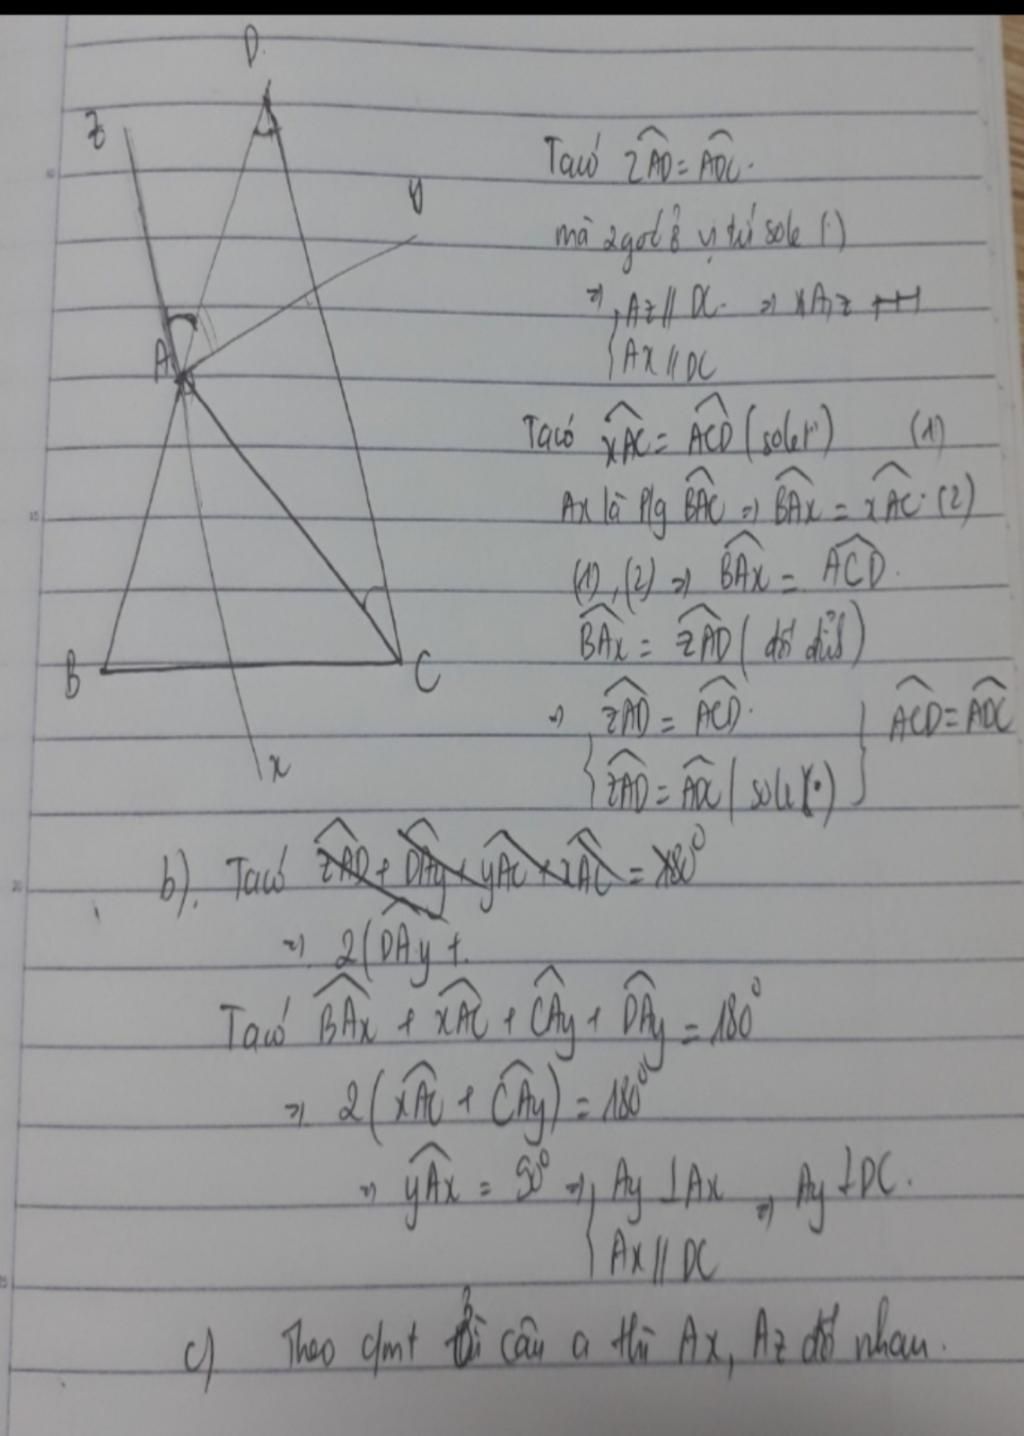 D
z
y
A
B
C
x
Ta có zAD = ADC.
mà 2 góc ở vị trí sole (.)
=> Az // DC. => x, A, z
Ax // DC
Ta có xAC = ACD (soletr) (1)
Ax là p/g BAC => BAx = xAC. (2)
(1), (2) => BAx = ACD.
BAx = zAD (đối đỉnh)
=> zAD = ACD. ACD = ADC
zAD = ADC (sole)
b). Ta có zAD + DAy + yAC + xAC = 180°
=> 2(DAy +
Ta có BAx + xAC + CAy + DAy = 180°
=> 2(xAC + CAy) = 180°
=> yAx = 90° => Ay ⊥ Ax => Ay ⊥ DC.
Ax // DC
c) Theo cmt ở câu a thì Ax, Az đối nhau.